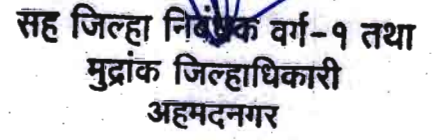 सह जिल्हा निबंधक वर्ग-१ तथा
मुद्रांक जिल्हाधिकारी
अहमदनगर